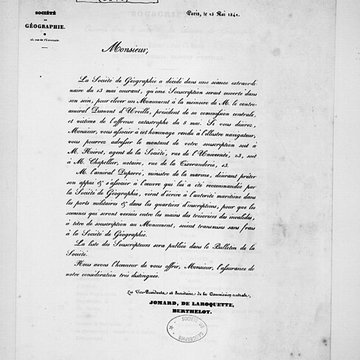 SOCIÉTÉ
DE
GÉOGRAPHIE.
Paris, le 15 Mai 1842.
Monsieur,
La Société de Géographie a décidé dans une séance extraordi-
naire du 13 mai courant, qu'une Souscription serait ouverte dans
son sein, pour élever un Monument à la mémoire de M. le contre-
amiral Dumont d'Urville, président de sa commission centrale,
et victime de l'affreuse catastrophe du 8 mai. Si vous désirez,
Monsieur, vous associer à cet hommage rendu à l'illustre navigateur,
vous pourrez adresser le montant de votre souscription soit à
M. Noirot, agent de la Société, rue de l'Université, 23, soit
à M. Chapellier, notaire, rue de la Tixeranderie, 13.
M. l'amiral Duperré, ministre de la marine, désirant prêter
son appui & s'associer à l'œuvre qui lui a été recommandée par
la Société de Géographie, vient d'écrire à l'autorité maritime dans
les ports militaires & dans les quartiers d'inscriptions, pour que les
sommes qui seront versées entre les mains des trésoriers des invalides,
à titre de souscription au Monument, soient transmises sans frais
à la Société de Géographie.
La liste des Souscripteurs sera publiée dans le Bulletin de la
Société.
Nous avons l'honneur de vous offrir, Monsieur, l'assurance de
notre considération très distinguée.
Les Vice-Présidents et Secrétaire de la Commission centrale,
JOMARD, DE LAROQUETTE,
BERTHELOT.